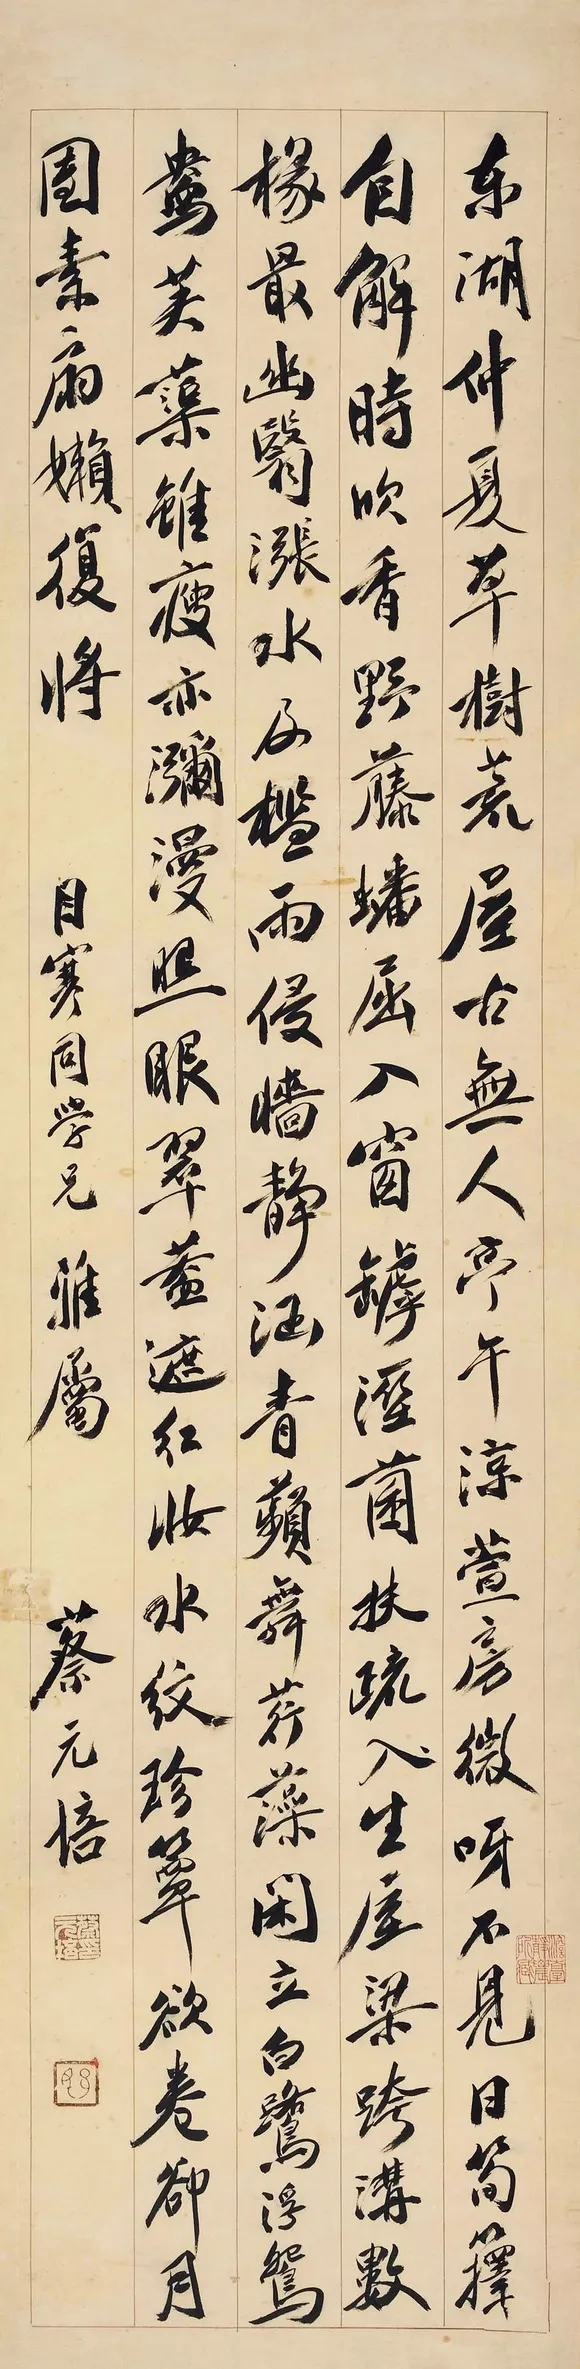 东湖仲夏草樹荒屋古無人亭午涼萱房微呀不見日筍籜
自解時吹香野藤蟠屈入窗罅溼菌扶疏生屋梁跨溝數
椽最幽翳漲水及檻雨侵牆靜涵青蘋舞荇藻閑立白鷺浮鴛
鴦芙蕖雖瘦亦瀰漫照眼翠蓋遮紅妝水紋珍簟欲卷卻月
團素扇懶復將
目寒同学兄 雅屬
蔡元培